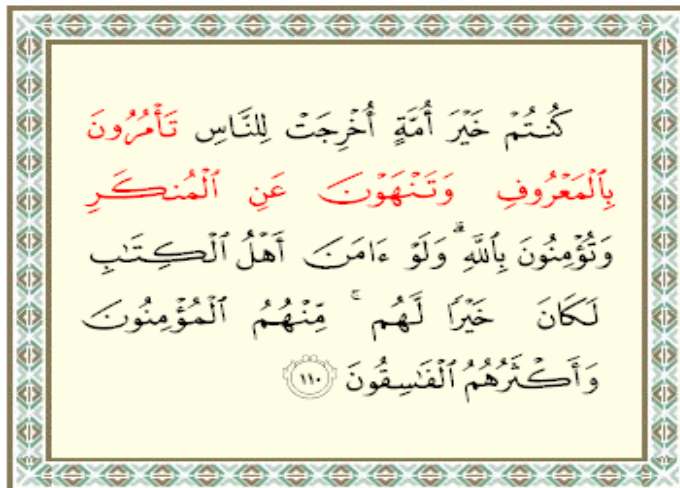 كُنتُمْ خَيْرَ أُمَّةٍ أُخْرِجَتْ لِلنَّاسِ تَأْمُرُونَ
بِٱلْمَعْرُوفِ وَتَنْهَوْنَ عَنِ ٱلْمُنكَرِ
وَتُؤْمِنُونَ بِٱللَّهِ ۗ وَلَوْ ءَامَنَ أَهْلُ ٱلْكِتَـٰبِ
لَكَانَ خَيْرًا لَّهُم ۚ مِّنْهُمُ ٱلْمُؤْمِنُونَ
وَأَكْثَرُهُمُ ٱلْفَـٰسِقُونَ ١١٠